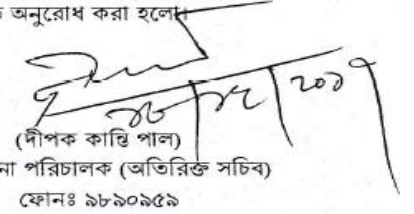 অনুরোধ করা হলো।
(দীপক কান্তি পাল)
না পরিচালক (অতিরিক্ত সচিব)
ফোনঃ ৯৮৯০৯৫৯